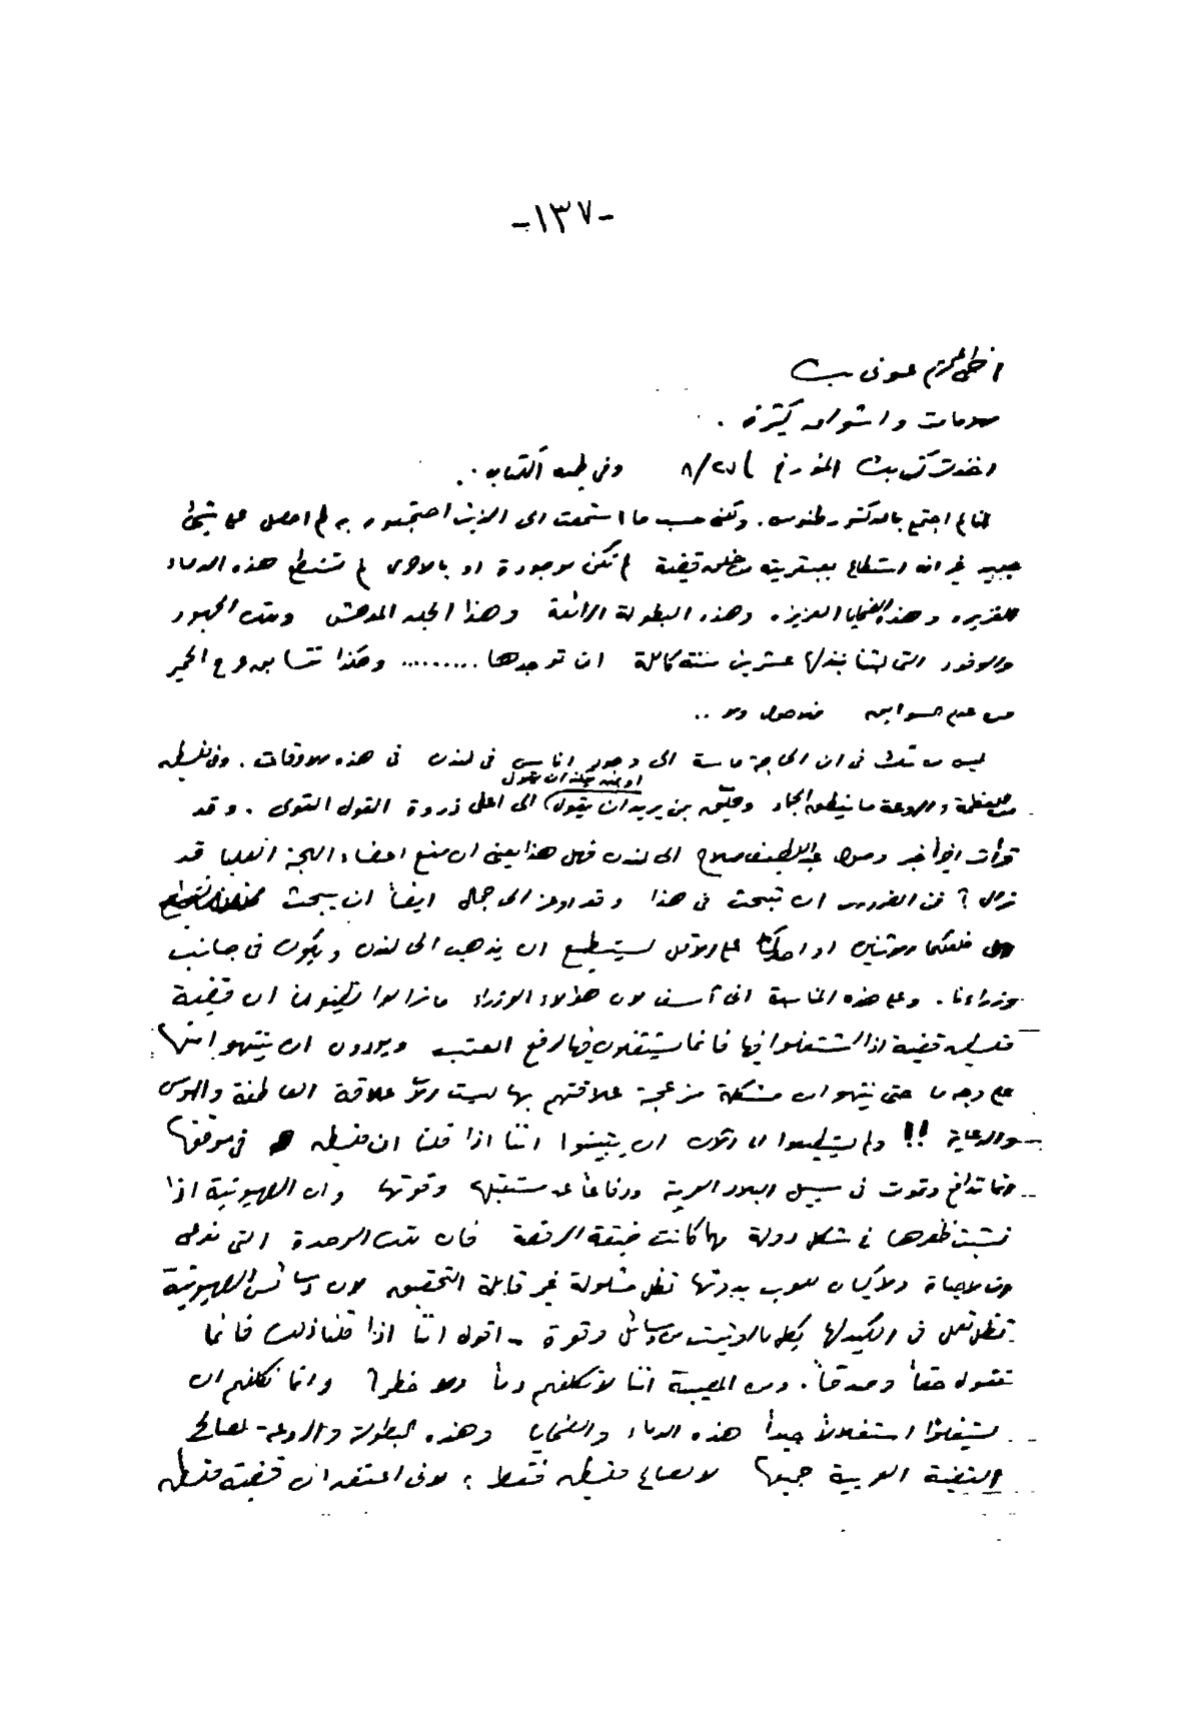 -١٣٧-
اخي المحترم عوني بك
سلامات واشواق كثيرة .
اخذت كتابك المؤرخ ٨/٢٧ وفي طيه الكتاب .
لم اجتمع بالدكتور طنوس. ولكني حسب ما استمعت الى الذين اجتمعوا به لم احصل على شيء
جديد غير انه استطاع بعبقريته خلق قضية لم تكن موجودة او بالاحرى لم تستطع هذه الدماء
الغزيرة وهذه الضحايا العزيزة وهذه البطولة الرائعة وهذا الجلد المدهش وتلك الجهود
والوفود التي لبثنا نبذلها عشرين سنة كاملة ان توجدها ......... وهكذا تتسابق مع الحمير
من عدم سوابق خلاصول ولا ..
ليس من شك في ان الحاجة ماسة الى وجود اناس في لندن في هذه الاوقات . وفي فلسطين
او يمكنه ان يقول
من العظمة والروعة ما ينطق الجماد ويحلق بمن يريد ان يقول الى اعلى ذروة القول القوي . وقد
قرأت اخيرا خبر وصول عبد اللطيف صلاح الى لندن فهل هذا يعني ان منع اعضاء اللجنة العليا قد
زال ؟ فمن الضروري ان تبحث في هذا وقد اوعز الى جمال ايضاً ان يبحث
فلعلكما الاثنين او احدكما على الاقل يستطيع ان يذهب الى لندن ويكون في جانب
وزراءنا . وعلى هذه المناسبة اني آسف لان هؤلاء الوزراء ما زالوا يظنون ان قضية
فلسطين قضية اذا اشتغلوا فيها فانما يشتغلون فيها لرفع العتب ويودون ان ينتهوا منها
على وجه ما حتى ينتهوا من مشكلة مزعجة علاقتهم بها ليست الا علاقة العاطفة والهوس
والدعاية !! ولم يستطيعوا الى الآن ان يتبينوا اننا اذا قلنا ان فلسطين في موقفها
انما تدافع وتموت في سبيل البلاد العربية ودفاعاً عن مستقبلها وقوتها وان الصهيونية اذا
نشبت ظفرها في شكل دولة مهما كانت ضيقة الرقعة فان تلك الوحدة التي
ولا حياة ولا كيان للعرب بدونها تظل مشلولة غير قابلة التحقيق لان دسائس الصهيونية
تظل تعمل في الكيد لها بكل ما اوتيت من دسائس وقوة - اقول اننا اذا قلنا ذلك فانما
نقوله حقاً وصدقاً . ومن المصيبة اننا لا نكلفهم دماً ولا خطرا وانما نكلفهم ان
يستغلوا استغلالاً جيداً هذه الدماء والضحايا وهذه البطولة والروعة لصالح
القضية العربية جميعها لا لصالح فلسطين فقط ؛ لاني اعتقد ان قضية فلسطين